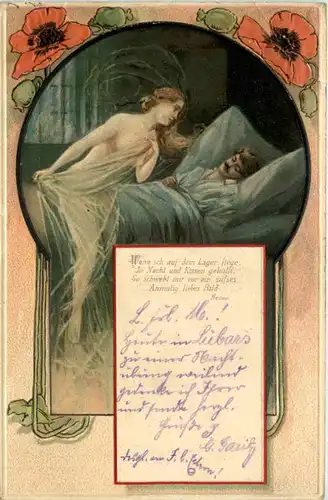 Wenn ich auf dem Lager liege,
In Nacht und Kissen gehüllt,
So schwebt mir vor ein süßes,
Anmutig liebes Bild.
Heine
L. frl. M.!
Heute in Lübars
zu einer Nacht-
übung weilend
gedenke ich Ihrer
und sende herzl.
Grüße
G.